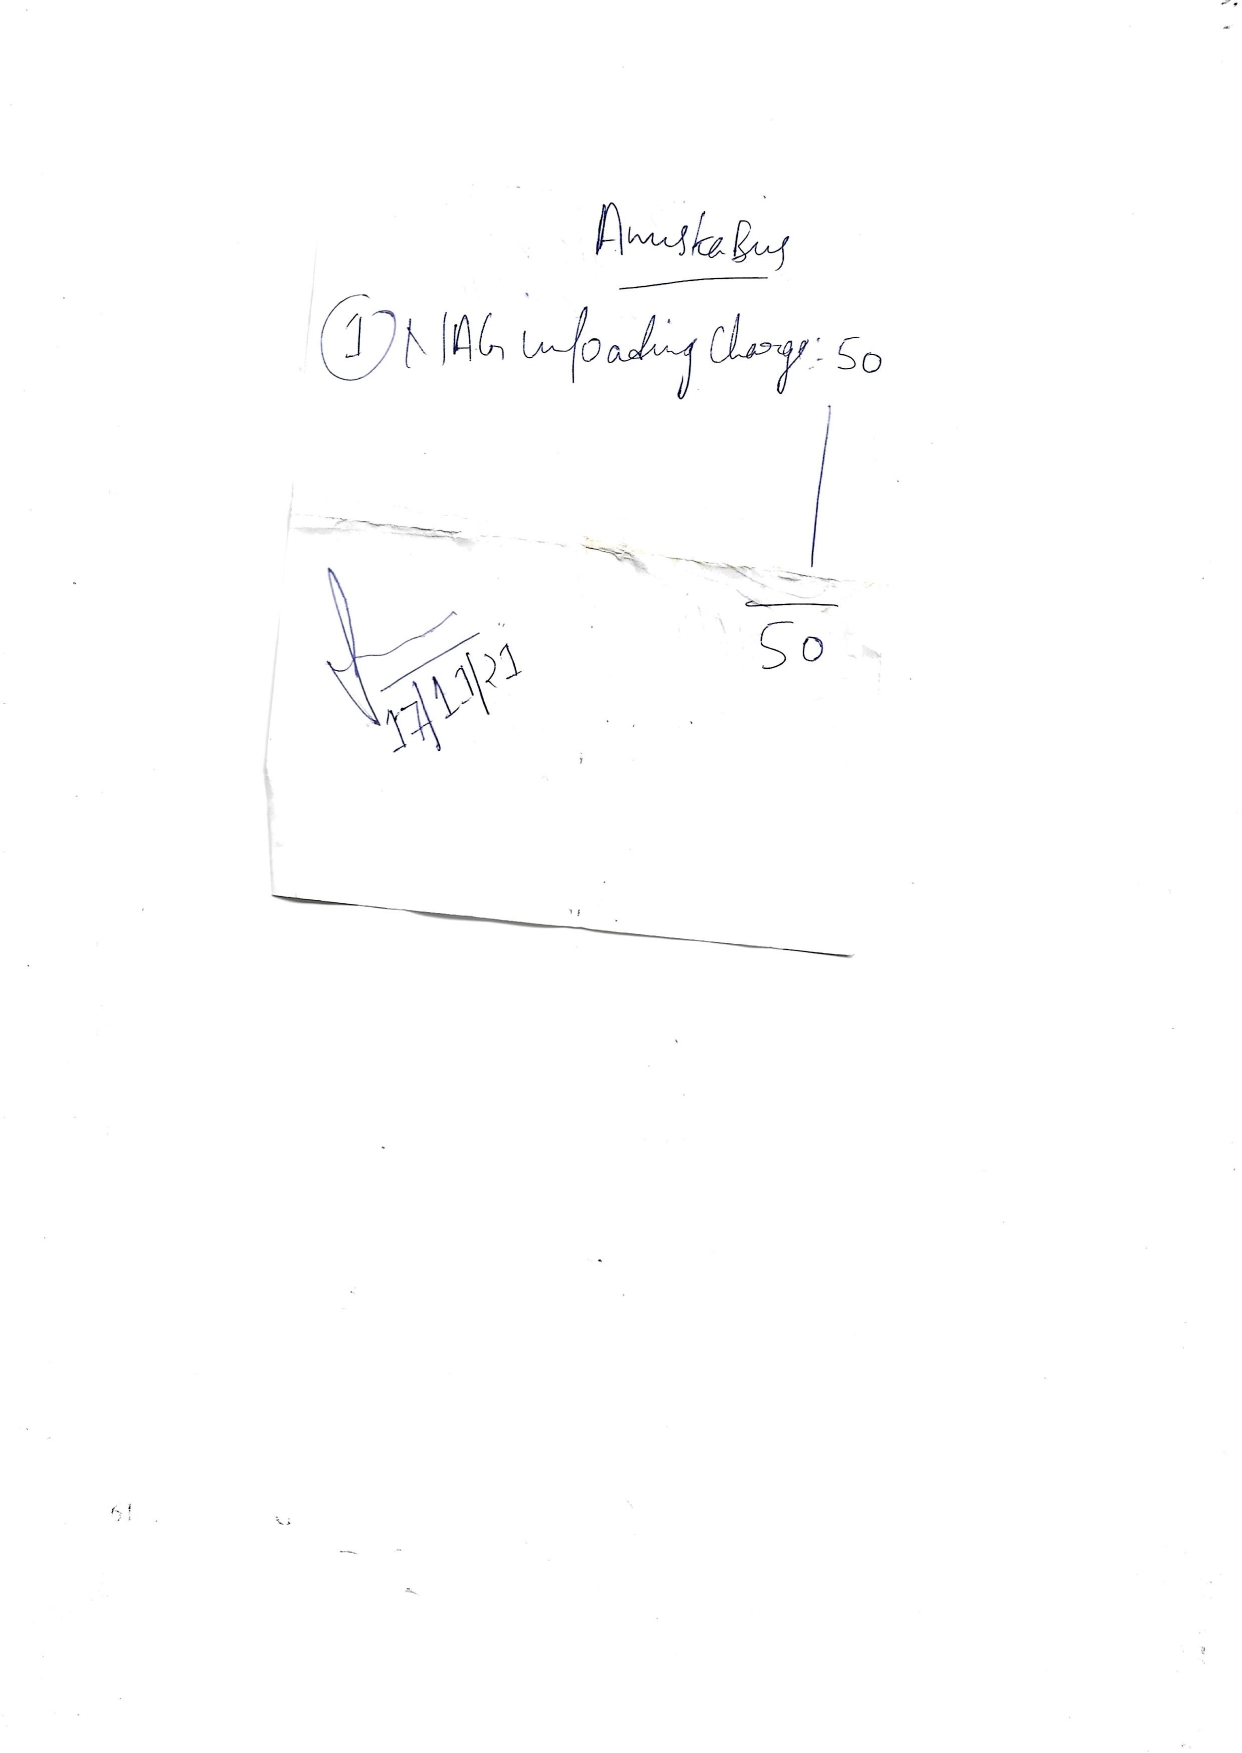 Anuska Bus
① NAG unloading Charge: 50
50
17/11/21